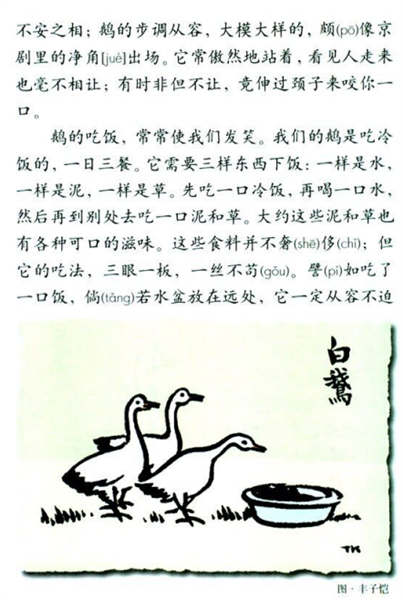 不安之相；鹅的步调从容，大模大样的，颇(pō)像京
剧里的净角[jué]出场。它常傲然地站着，看见人走来
也毫不相让；有时非但不让，竟伸过颈子来咬你一
口。
鹅的吃饭，常常使我们发笑。我们的鹅是吃冷
饭的，一日三餐。它需要三样东西下饭：一样是水，
一样是泥，一样是草。先吃一口冷饭，再喝一口水，
然后再到别处去吃一口泥和草。大约这些泥和草也
有各种可口的滋味。这些食料并不奢(shē)侈(chǐ)；但
它的吃法，三眼一板，一丝不苟(gǒu)。譬(pì)如吃了
一口饭，倘(tǎng)若水盆放在远处，它一定从容不迫
白鹅
TK
图·丰子恺